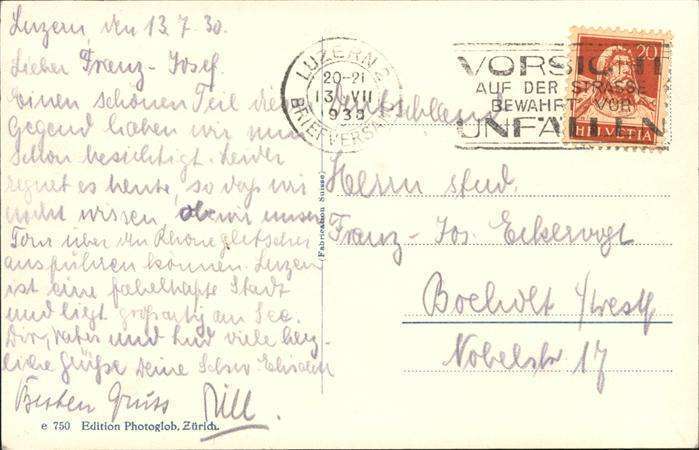 Luzern, den 13.7.30.
Lieber Franz-Josef.
Einen schönen Teil der
Gegend haben wir nun
schon besichtigt. Leider
regnet es heute, so daß wir
nicht wissen, ob wir unsere
Tour über den Rhonegletscher
ausführen können. Luzern
ist eine fabelhafte Stadt
und liegt großartig am See.
Dir, Vater und viele herz-
liche Grüße Deine Schw. Elisabeth
Besten Gruss Till.
e 750 Edition Photoglob, Zürich.
(Fabrication Suisse)
LUZERN 2
20-21
13 VII
1930
BRIEFVERSAND
VORSICHT
AUF DER STRASSE
BEWAHRT VOR
UNFÄLLEN
20
HELVETIA
Deutschland
Herrn stud.
Franz-Jos. Eckervogt
Bocholt i/Westf
Nobelstr 17